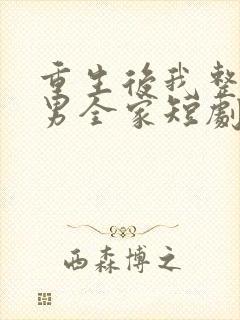 重生後我整
男全家短劇
西森博之